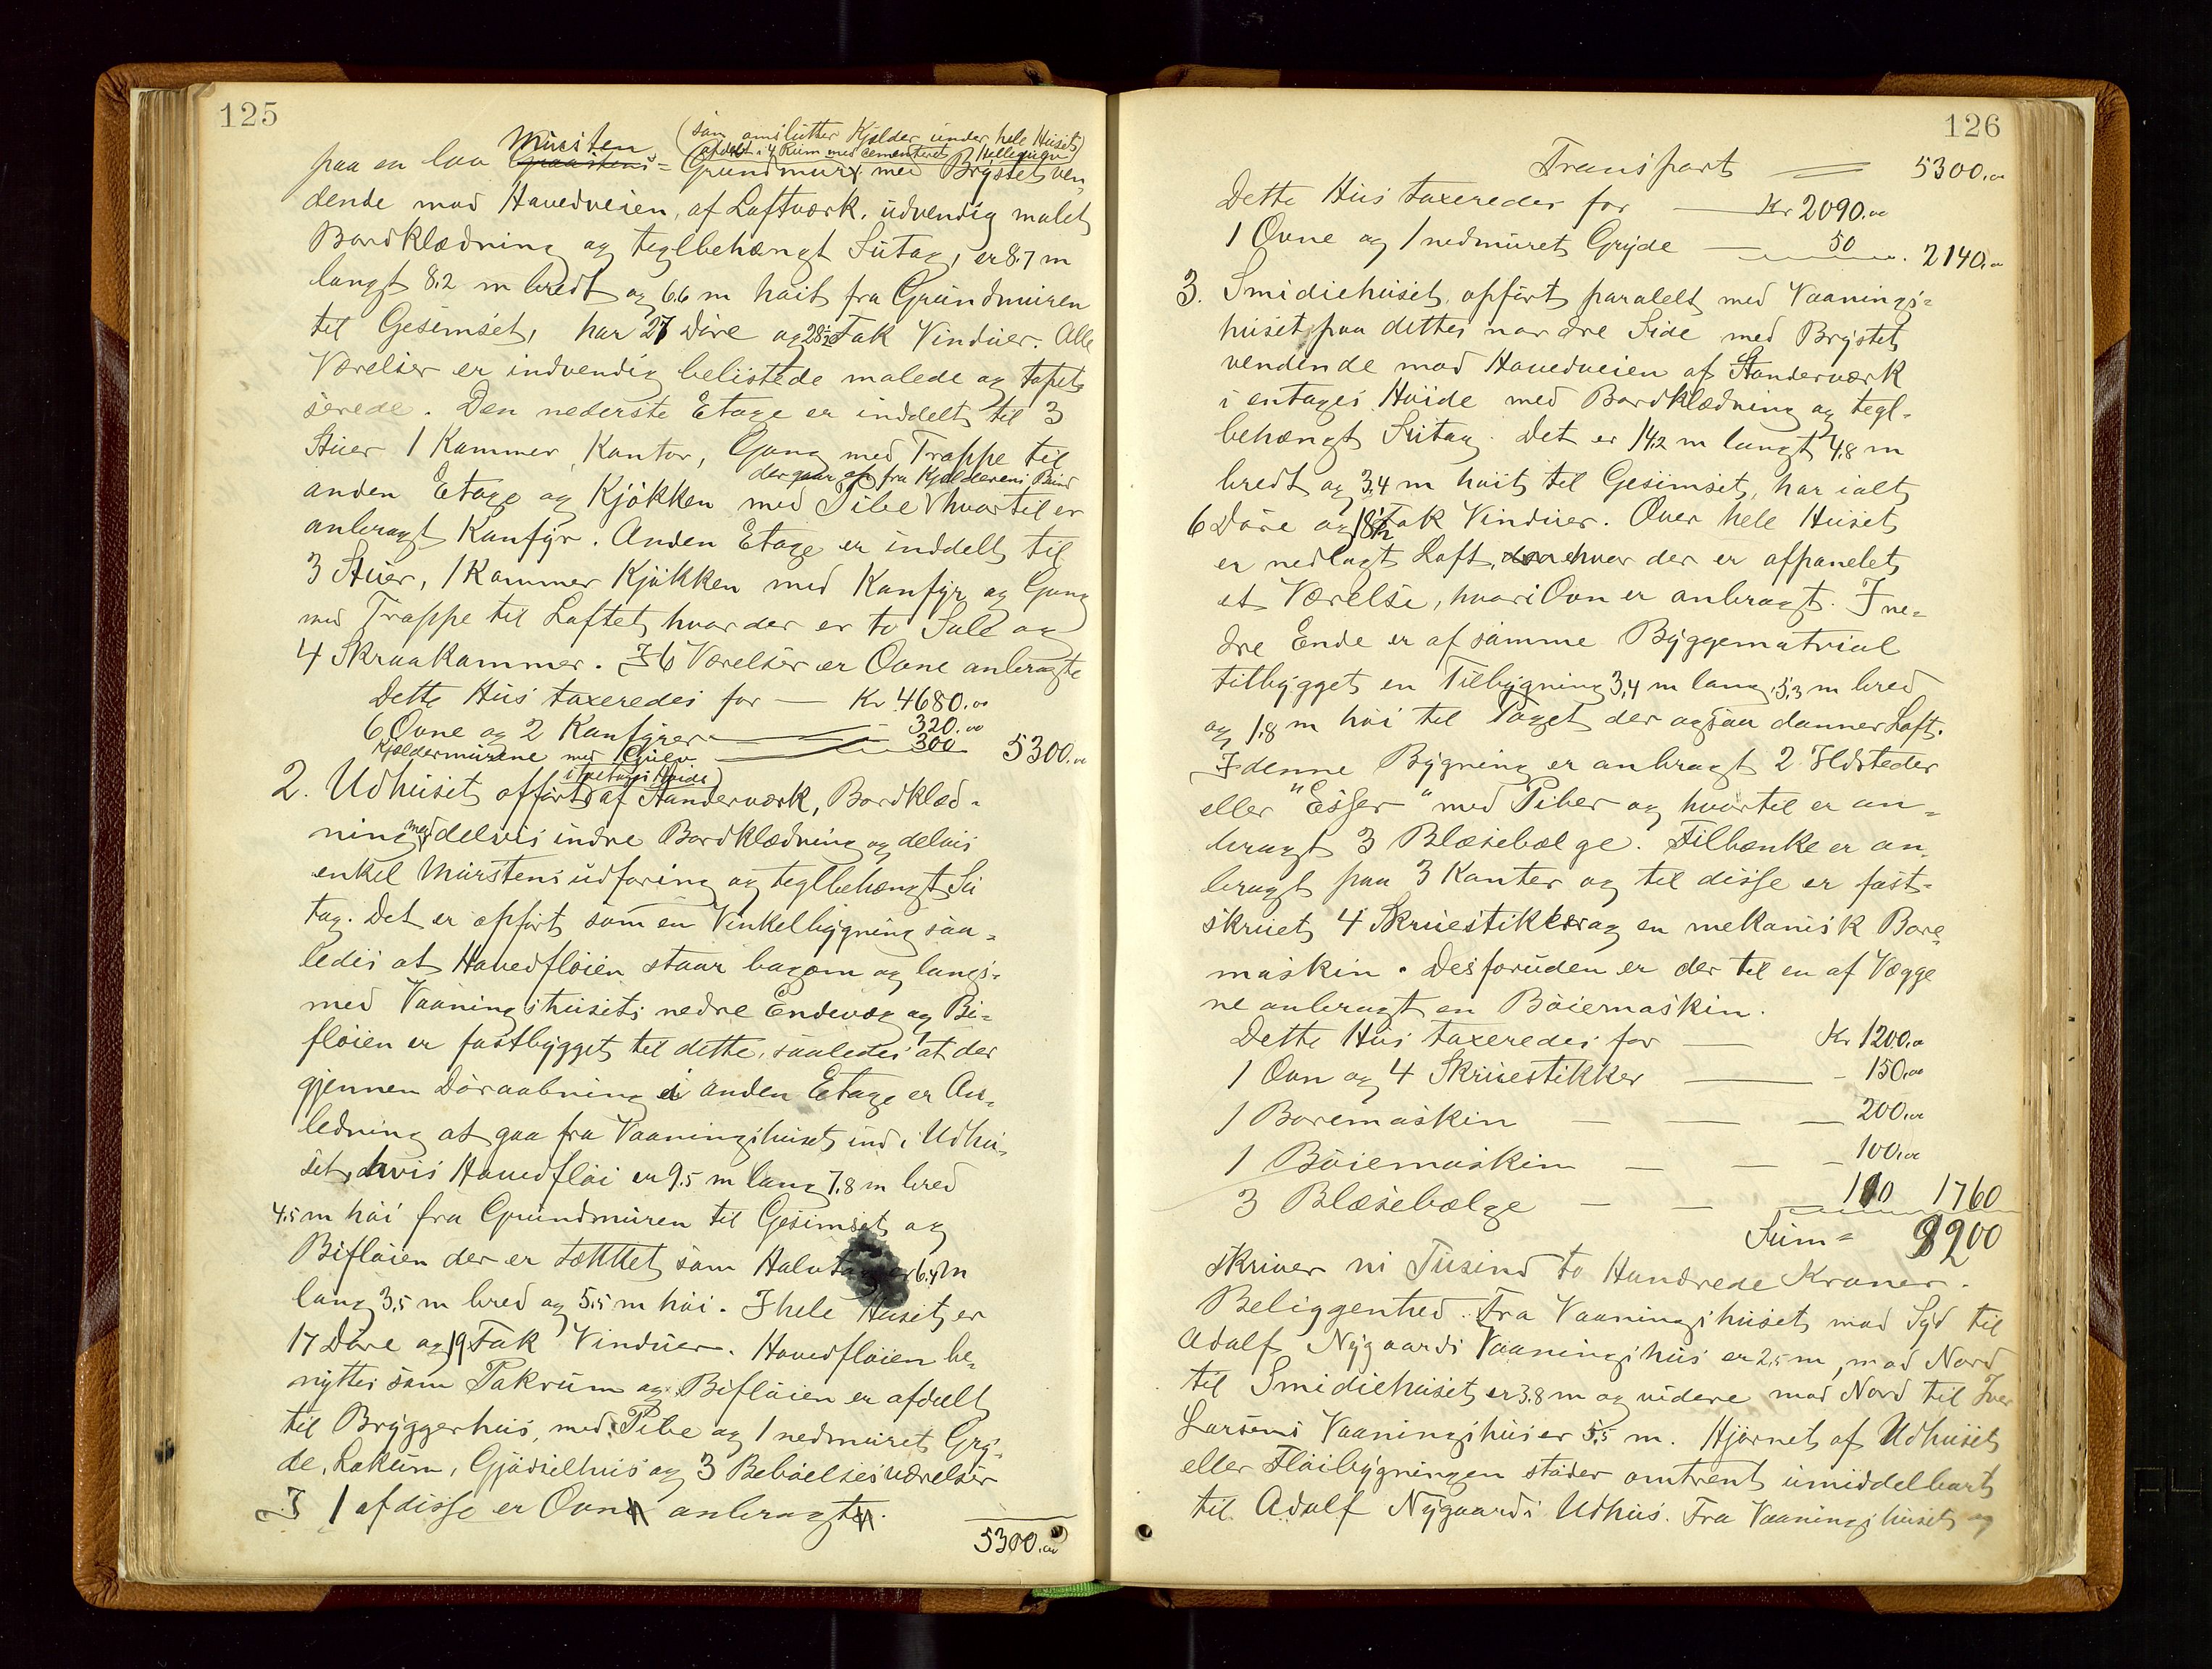 125
Mursten (som omslutter Kjelder under hele Huset)
afdelt i 4 Rum med cementeret Hellegulv
paa en lav Graastens= Grundmur med Brystet ven,
dende mod Hovedveien, af Laftværk, udvendig malet
Bordklædning og teglbehængt Sutag, er 8.7 m
langt 8.2 m bredt og 6.6 m høit fra Grundmuren
til Gesimset, har 27 Døre og 28½ Fak Vinduer. Alle
Værelser er indvendig belistede malede og tapet,
serede. Den nederste Etage er inddelt til 3
Stuer 1 Kammer, Kontor, Gang med Trappe til
der gaar op fra Kjelderens Bund
anden Etage og Kjøkken med Pibe hvortil er
anbragt Komfyr. Anden Etage er inddelt til
3 Stuer, 1 Kammer Kjøkken med Komfyr og Gang
med Trappe til Loftet hvor der er to Sale og
4 Skraakammer. I 6 Værelser er Ovne anbragte
Dette Hus taxeredes for — Kr 4680.00
6 Ovne og 2 Komfyrer — 320.00
Kjeldermurene med Gulv — 300 5300.00
i toetages Høide
2. Udhuset opført af Standerværk, Bordklæd=
ning med delvis indre Bordklædning og delvis
enkel Murstens udforing og teglbehængt Su
tag. Det er opført som en Vinkelbygning saa=
ledes at Hovedfløien staar bagom og langs=
med Vaaningshusets nedre Endevæg og Bi=
fløien er fastbygget til dette, saaledes at der
gjennem Døraabning i anden Etage er An,
ledning at gaa fra Vaaningshuset ind i Udhu,
set, hvis Hovedfløi er 9.5 m lang 7.8 m bred
4.5 m høi fra Grundmuren til Gesimset og
Bifløien der er tækket som Halvtag er 6.4 m
lang 3.5 m bred og 5.5 m høi. I hele Huset er
17 Døre og 19 Fak Vinduer. Hovedfløien be,
nyttes som Pakrum og Bifløien er afdelt
til Bryggerhus, med Pibe og 1 nedmuret Gry=
de, Lokum, Gjødselhus og 3 Beboelsesværelser
I 1 af disse er Ovn anbragt.
5300.00
126
Transport — 5300.00
Dette Hus taxeredes for — Kr 2090.00
1 Ovne og 1 nedmuret Gryde — 50 . 2140.00
3. Smidiehuset, opført paralelt med Vaanings=
huset paa dettes nordre Side med Brystet
vendende mod Hovedveien af Standerværk
i entages Høide med Bordklædning og tegl=
behængt Sutag. Det er 14,2 m langt 4,8 m
bredt og 3,4 m høit til Gesimset, har ialt
6 Døre og 18½ Fak Vinduer. Over hele Huset
er nedlagt Loft, hvor der er afpanelet
et Værelse, hvori Ovn er anbragt. I ne=
dre Ende er af samme Byggematrial
tilbygget en Tilbygning 3,4 m lang, 5,3 m bred
og 1.8 m høi til Taget der ogsaa danner Loft.
I denne Bygning er anbragt 2 Ildsteder
eller "Esser" med Piber og hvortil er an=
bragt 3 Blæsebælge. Filbænke er an,
bragt paa 3 Kanter og til disse er fast=
skruet 4 Skruestikker og en mekanisk Bore,
maskin. Desforuden er der til en af Vægge
ne anbragt en Bøiemaskin.
Dette Hus taxeredes for — Kr 1200.00
1 Ovn og 4 Skruestikker — 150.00
1 Boremaskin — — — 200.00
1 Bøiemaskin — — — 100.00
3 Blæsebælge — — 110 1760
Sum = 9200
skriver ni Tusind to Hundrede Kroner.
Beliggenhed. Fra Vaaningshuset mod Syd til
Adolf Nygaards Vaaningshus er 2,5 m, mod Nord
til Smidiehuset er 3.8 m og videre mod Nord til Iver
Larsens Vaaningshus er 5,5 m. Hjørnet af Udhuset
eller Fløibygningen støder omtrent umiddelbart
til Adolf Nygaards Udhus. Fra Vaaningshuset og